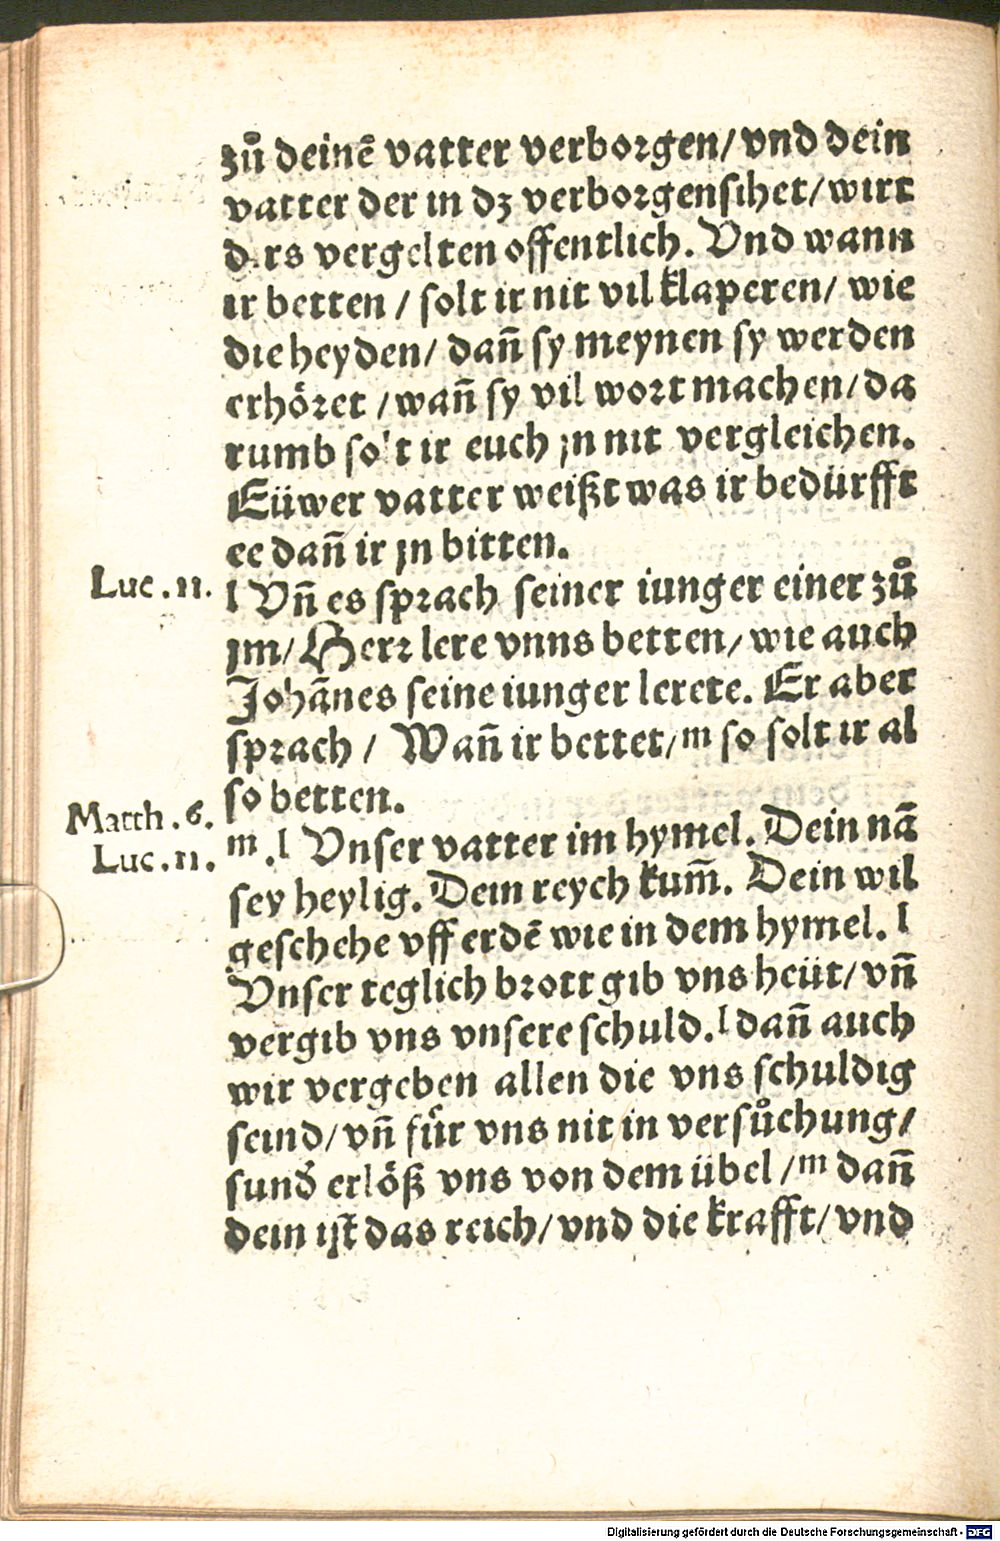 zů deinē vatter verborgen/ vnd dein
vatter der in dz verborgen sihet/ wirt
dirs vergelten offentlich. Vnd wann
ir betten / solt ir nit vil klaperen/ wie
die heyden/ dañ sy meynen sy werden
erhöret / wañ sy vil wort machen/ da
rumb solt ir euch jn nit vergleichen.
Eüwer vatter weißt was ir bedürfft
ee dañ ir jn bitten.
Luc. 11. l Vñ es sprach seiner iunger einer zů
jm/ Herr lere vnns betten/ wie auch
Johānes seine iunger lerete. Er aber
sprach / Wañ ir bettet/ m so solt ir al
so betten.
Matth. 6.
Luc. 11. m. l Vnser vatter im hymel. Dein nā
sey heylig. Dein reych kum̄. Dein wil
geschehe vff erdē wie in dem hymel. l
Vnser teglich brott gib vns heüt/ vñ
vergib vns vnsere schuld. l dañ auch
wir vergeben allen die vns schuldig
seind/ vñ für vns nit in versůchung/
sund' erlöß vns von dem übel / m dañ
dein ist das reich/ vnd die krafft/ vnd
Digitalisierung gefördert durch die Deutsche Forschungsgemeinschaft - DFG